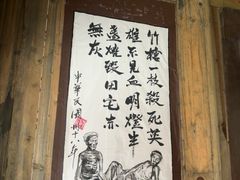 竹槍一枝殺死英
雄不見血明燈半
盞燒毀田宅亦
無灰
中華民國十八年